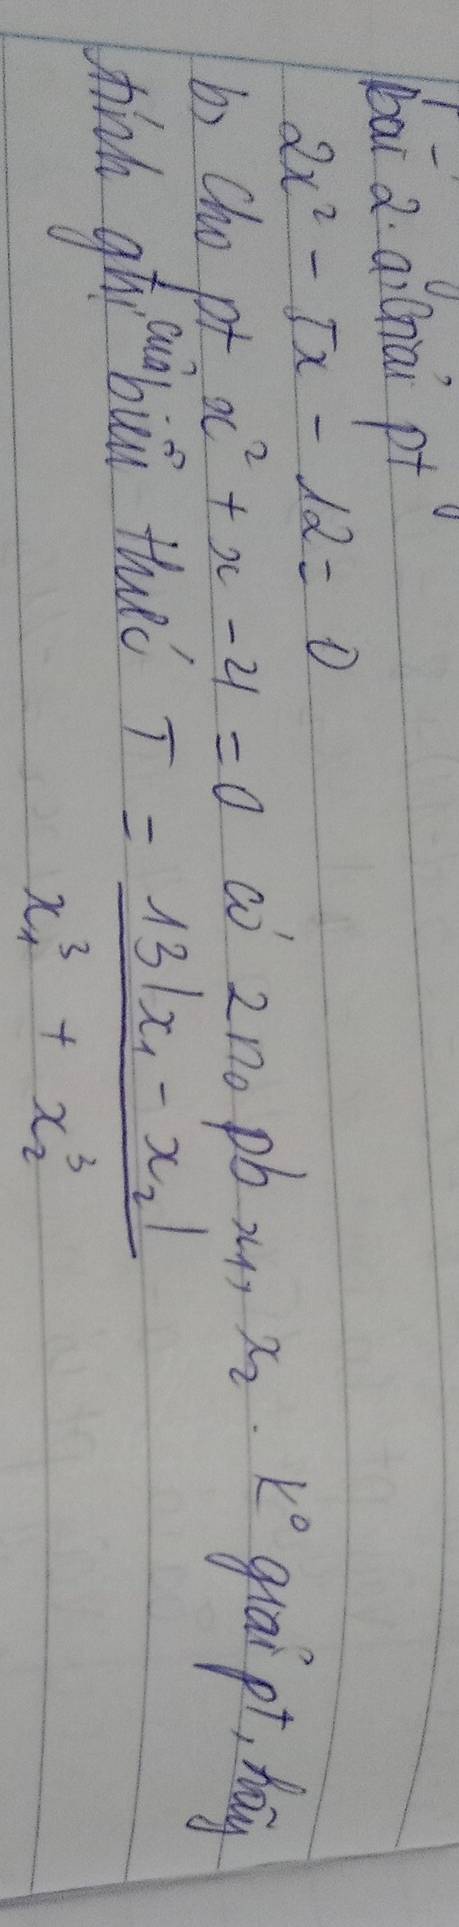 bài 2. a, Giải pt
2x² - 5x - 12 = 0
b, Cho pt x² + x - 4 = 0 có 2 n₀ pb x₁, x₂. k⁰ giải pt, hãy
tính gtrị của biểu thức T = 13|x₁ - x₂|
x₁³ + x₂³